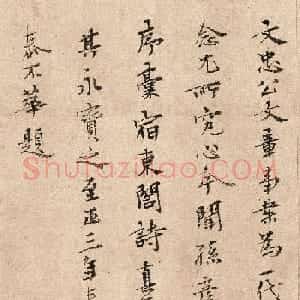 文忠公文章事業為一代
念尤所究心聞孫
序藁宿東閣詩真
其永寶之至正三年
泰不華題
Shufaziliao.COM